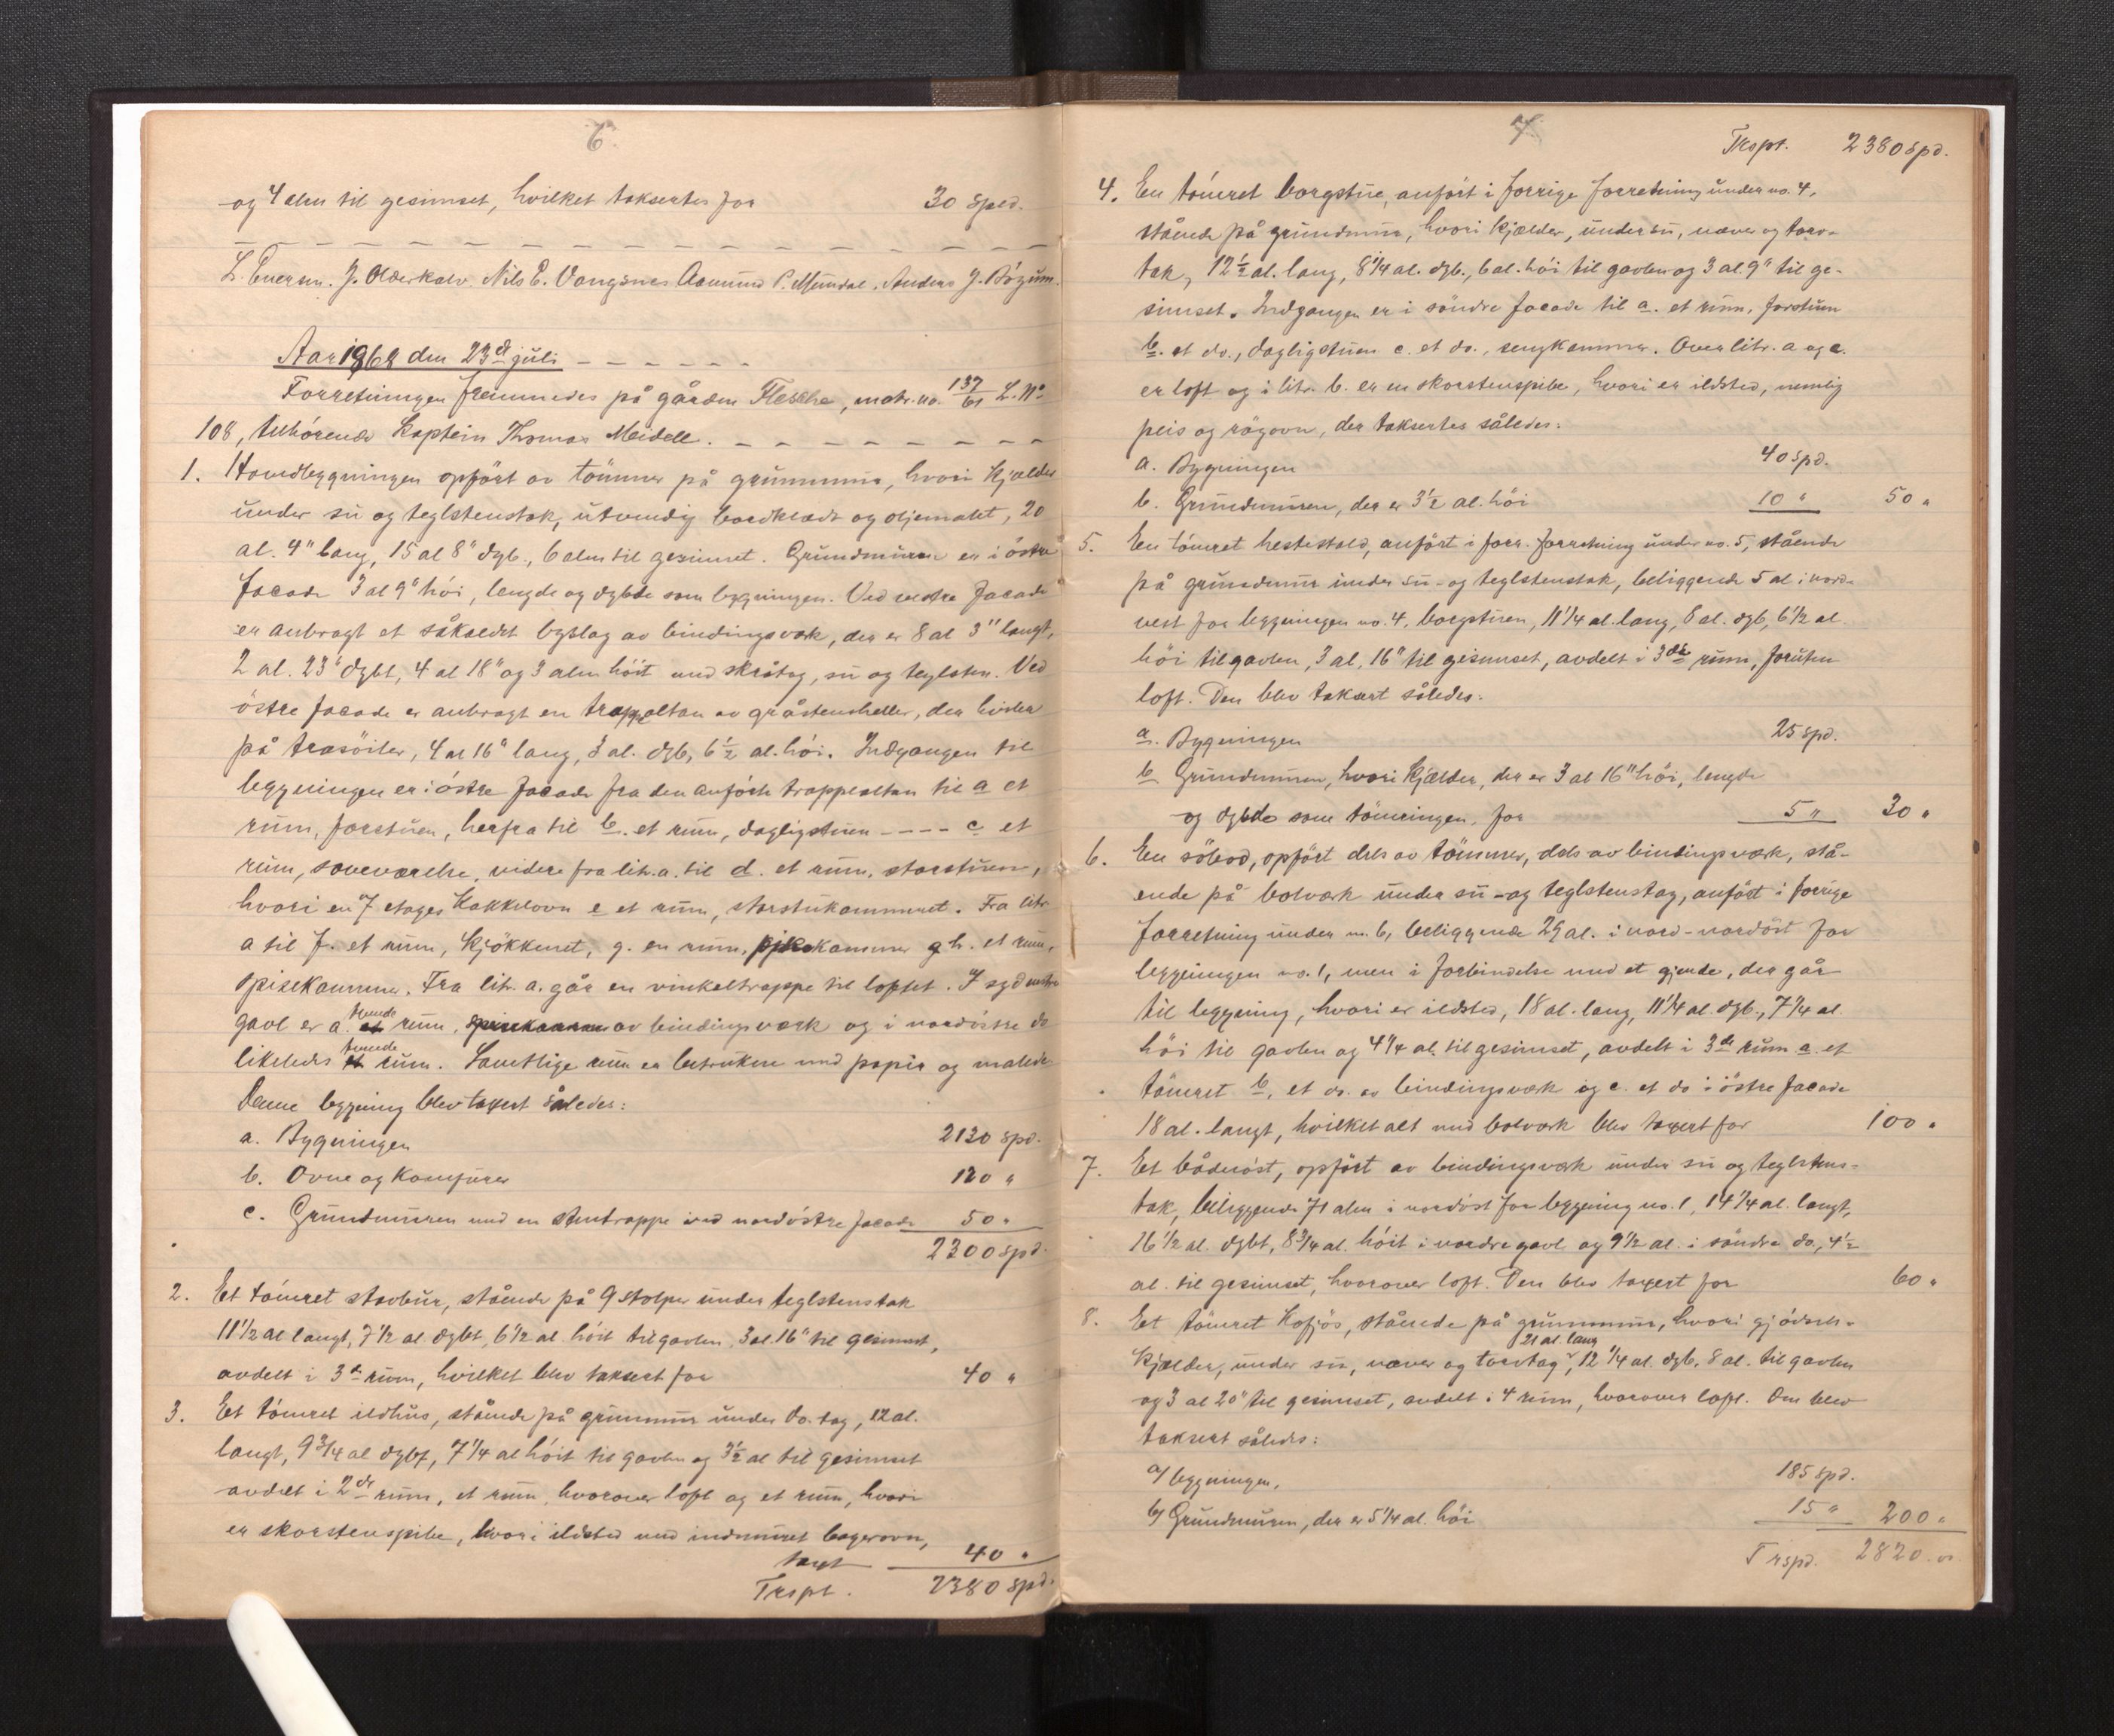 6.
og 4 alen til gesimset, hvilket taksertes for 30 Spd.
L. Enersen. J. Olderkalv. Nils E. Vangsnes Aamund P. Mundal. Anders J. Bøyum.
Aar 1868 den 23de juli
Forretningen fremmedes på gården Flesche, matr. no. 137/61 L. No
108, tilhørende Kaptein Thomas Meidell.
1. Hovedbygningen opført av tömmer på grunnmur, hvori Kjælder
under su og teglstenstak, utvendig bordklædt og oljemalet, 20
al. 4" lang, 15 al 8" dyb., 6 alen til gesimset. Grundmuren er i östre
facade 3 al 9" höi, lengde og dybde som bygningen. Ved vestre facade
er anbragt et såkaldt byslag av bindingsverk, der er 8 al 3" langt,
2 al. 23" dybt, 4 al 18" og 3 alen höit med skråtag, su og teglsten. Ved
östre facade er anbragt en trappaltan av gråstensheller, der hviler
på træsöiler, 4 al 16" lang, 3 al. dyb, 6 1/2 al. höi. Indgangen til
bygningen er i östre facade fra den anförte trappealtan til a et
rum, forstuen, herfra til b. et rum, dagligstuen - - - - c et
rum, soveværelse, videre fra litr. a. til d. et rum, storstuen,
hvori en 7 etages Kakkelovn e et rum, storstukammeret. Fra litr
a til f. et rum, Kjökkenet, g. en rum, pikekammer og h. et rum,
spisekammer. Fra litr. a. går en vinkeltrappe til loftet. I sydvestre
gavl er a. tvende rum, av bindingsværk og i nordöstre do
likeledes tvende rum. Samtlige rum er betrukne med papir og malede
Denne bygning blev taxert således:
a. Bygningen 2130 spd.
b. Ovne og Komfurer 120 "
c. Grundmuren med en stentrappe ved nordöstre facade 50 "
2300 spd.
2. Et tömret stavbur, stående på 9 stolper under teglstenstak
11 1/2 al langt, 7 1/2 al dybt, 6 1/2 al. höit til gavlen, 3 al. 16" til gesimset,
avdelt i 3de rum, hvilket blev taksert for 40 "
3. Et tömret ildhus, stående på grunmur under do. tag, 12 al.
langt, 9 3/4 al dybt, 7 1/4 al höit til gavlen og 3 1/2 al til gesimset
avdelt i 2de rum, et rum, hvorover loft og et rum, hvori
er skorstenspibe, hvori ildsted med indmuret bagerovn,
taxt 40 "
Trspt. 2380 spd.
7.
Trspt. 2380 spd.
4. En tömret borgstue, anfört i forrige forretning under no. 4,
stående på grundmur, hvori Kjælder, under su, næver og torv-
tak, 12 1/2 al. lang, 8 1/4 al. dyb., 6 al. höi til gavlen og 3 al. 9" til ge-
simset. Indgangen er i söndre facade til a. et rum, forstuen
b. et do., dagligstuen c. et do., sengkammer. Over litr. a og c.
er loft og i litr. b. er en skorstenspibe, hvori er ildsted, nemlig
peis og rögovn, der taksertes således:
a. Bygningen 40 spd.
b. Grundmuren, der er 3 1/2 al. höi 10 " 50 "
5. En tömret hestestald, anfört i forr. forretning under no. 5, stående
på grundmur under su- og teglstenstak, beliggende 5 al i nord-
vest for bygningen no. 4, borgstuen, 11 1/4 al. lang, 8 al. dyb, 6 1/2 al.
höi til gavlen, 3 al, 16" til gesimset, avdelt i 3de rum, foruten
loft. Den blev taksert således:
a. Bygningen 25 spd.
b Grundmuren, hvori Kjælder, der er 3 al 16" höi, lengde
og dybde som tömringen, for 5 " 30 "
6. En söbod, opfört dels av tömmer, dels av bindingsværk, stå-
ende på bolværk under su- og teglstenstag, anfört i forrige
forretning under no. 6, beliggende 29 al. i nord-nordöst for
bygningen no. 1, men i forbindelse med et gjerde, der går
til bygning, hvori er ildsted, 18 al. lang, 11 1/4 al. dyb., 7 1/4 al.
höi til gavlen og 4 1/4 al. til gesimset, avdelt i 3de rum a. et
tömret b. et do. av bindingsværk og c. et do i östre facade
18 al. langt, hvilket alt med bolværk blev taxert for 100 "
7. Et bådenöst, opfört av bindingsværk under su og teglstens-
tak, beliggende 71 alen i nordöst for bygning no. 1, 14 1/4 al. langt,
16 1/2 al. dybt, 8 3/4 al. höit i nordre gavl og 9 1/2 al. i söndre do., 4 1/2
al. til gesimset, hvorover loft. Den blev taxert for 60 "
8. Et tömret Kofjös, stående på grunnmur, hvori gjödsel-
kjælder, under su, næver og torvtag, 21 al. lang, 12 1/4 al. dyb, 8 al. til gavlen
og 3 al 20" til gesimset, avdelt i 4 rum, hvorover loft. Den blev
taksert således:
a/ bygningen, 185 spd.
b/ Grundmuren, der er 5 1/4 al. höi 15 " 200 "
Trspd. 2820.